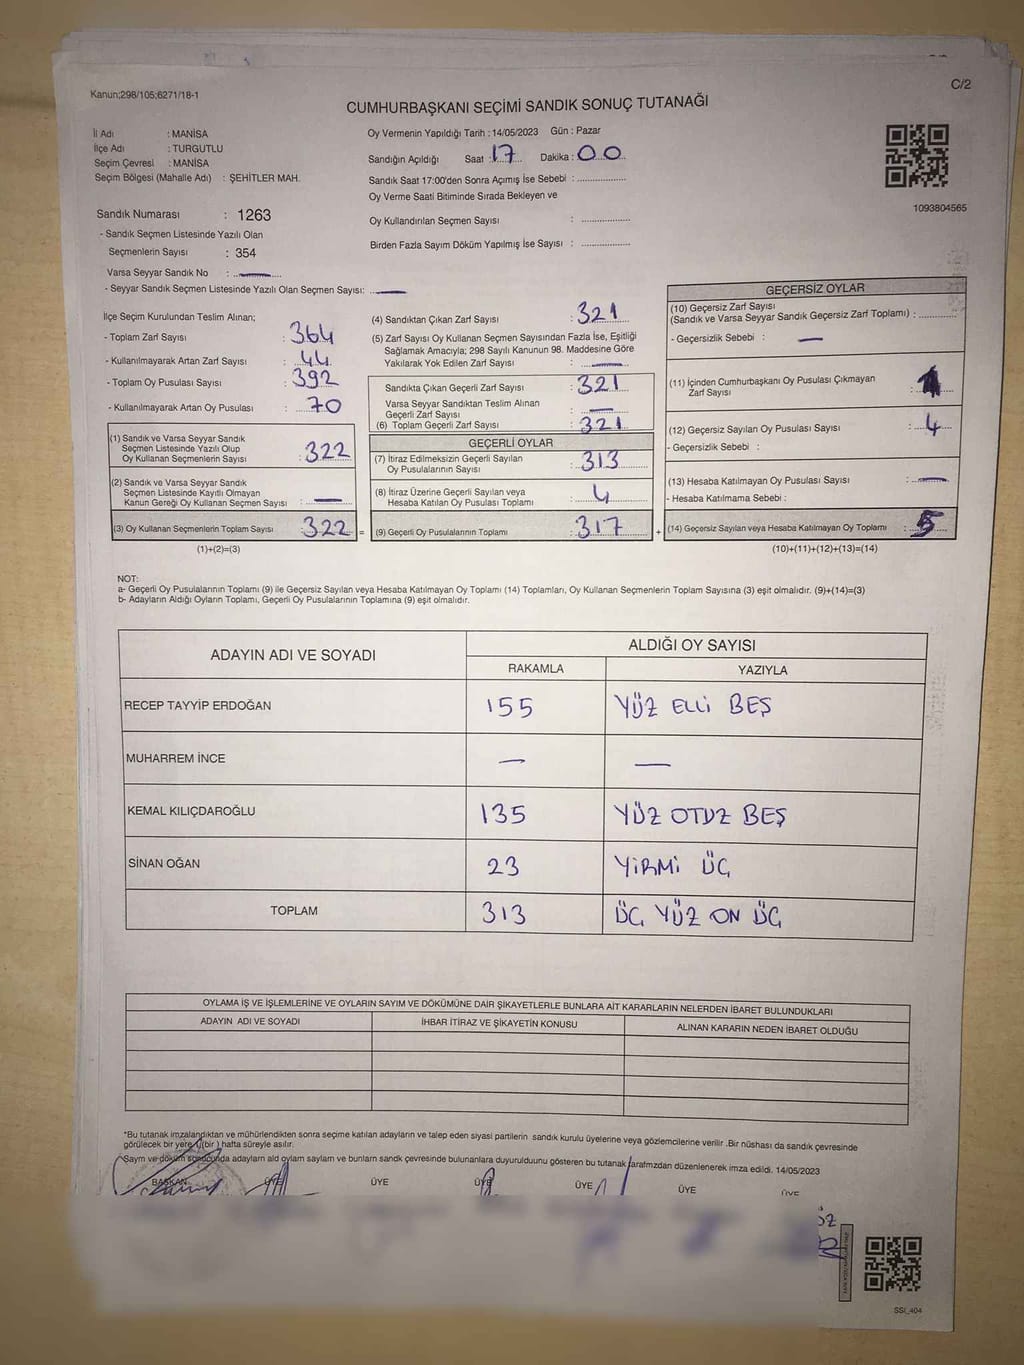 Kanun;298/105;6271/18-1
C/2
CUMHURBAŞKANI SEÇİMİ SANDIK SONUÇ TUTANAĞI
İl Adı : MANİSA
İlçe Adı : TURGUTLU
Seçim Çevresi : MANİSA
Seçim Bölgesi (Mahalle Adı) : ŞEHİTLER MAH.
Oy Vermenin Yapıldığı Tarih : 14/05/2023 Gün : Pazar
Sandığın Açıldığı Saat : 17 Dakika : 00
Sandık Saat 17:00'den Sonra Açımış İse Sebebi : ....................
Oy Verme Saati Bitiminde Sırada Bekleyen ve
Oy Kullandırılan Seçmen Sayısı : ....................
Birden Fazla Sayım Döküm Yapılmış İse Sayısı : ....................
1093804565
Sandık Numarası : 1263
- Sandık Seçmen Listesinde Yazılı Olan
Seçmenlerin Sayısı : 354
Varsa Seyyar Sandık No : —
- Seyyar Sandık Seçmen Listesinde Yazılı Olan Seçmen Sayısı: —
İlçe Seçim Kurulundan Teslim Alınan;
- Toplam Zarf Sayısı : 364
- Kullanılmayarak Artan Zarf Sayısı : 44
- Toplam Oy Pusulası Sayısı : 392
- Kullanılmayarak Artan Oy Pusulası : 70
(1) Sandık ve Varsa Seyyar Sandık
Seçmen Listesinde Yazılı Olup
Oy Kullanan Seçmenlerin Sayısı : 322
(2) Sandık ve Varsa Seyyar Sandık
Seçmen Listesinde Kayıtlı Olmayan
Kanun Gereği Oy Kullanan Seçmen Sayısı : —
(3) Oy Kullanan Seçmenlerin Toplam Sayısı : 322 =
(1)+(2)=(3)
(4) Sandıktan Çıkan Zarf Sayısı : 321
(5) Zarf Sayısı Oy Kullanan Seçmen Sayısından Fazla İse, Eşitliği
Sağlamak Amacıyla; 298 Sayılı Kanunun 98. Maddesine Göre
Yakılarak Yok Edilen Zarf Sayısı : —
Sandıkta Çıkan Geçerli Zarf Sayısı : 321
Varsa Seyyar Sandıktan Teslim Alınan
Geçerli Zarf Sayısı : —
(6) Toplam Geçerli Zarf Sayısı : 321
GEÇERLİ OYLAR
(7) İtiraz Edilmeksizin Geçerli Sayılan
Oy Pusulalarının Sayısı : 313
(8) İtiraz Üzerine Geçerli Sayılan veya
Hesaba Katılan Oy Pusulası Toplamı : 4
(9) Geçerli Oy Pusulalarının Toplamı : 317 +
GEÇERSİZ OYLAR
(10) Geçersiz Zarf Sayısı
(Sandık ve Varsa Seyyar Sandık Geçersiz Zarf Toplamı) : ..............
- Geçersizlik Sebebi : —
(11) İçinden Cumhurbaşkanı Oy Pusulası Çıkmayan
Zarf Sayısı : 1
(12) Geçersiz Sayılan Oy Pusulası Sayısı : 4
- Geçersizlik Sebebi :
(13) Hesaba Katılmayan Oy Pusulası Sayısı : —
- Hesaba Katılmama Sebebi :
(14) Geçersiz Sayılan veya Hesaba Katılmayan Oy Toplamı : 5
(10)+(11)+(12)+(13)=(14)
NOT:
a- Geçerli Oy Pusulalarının Toplamı (9) ile Geçersiz Sayılan veya Hesaba Katılmayan Oy Toplamı (14) Toplamları, Oy Kullanan Seçmenlerin Toplam Sayısına (3) eşit olmalıdır. (9)+(14)=(3)
b- Adayların Aldığı Oyların Toplamı, Geçerli Oy Pusulalarının Toplamına (9) eşit olmalıdır.
ADAYIN ADI VE SOYADI ALDIĞI OY SAYISI
RAKAMLA YAZIYLA
RECEP TAYYİP ERDOĞAN 155 YÜZ ELLİ BEŞ
MUHARREM İNCE — —
KEMAL KILIÇDAROĞLU 135 YÜZ OTUZ BEŞ
SİNAN OĞAN 23 YİRMİ ÜÇ
TOPLAM 313 ÜÇ YÜZ ON ÜÇ
OYLAMA İŞ VE İŞLEMLERİNE VE OYLARIN SAYIM VE DÖKÜMÜNE DAİR ŞİKAYETLERLE BUNLARA AİT KARARLARIN NELERDEN İBARET BULUNDUKLARI
ADAYIN ADI VE SOYADI İHBAR İTİRAZ VE ŞİKAYETİN KONUSU ALINAN KARARIN NEDEN İBARET OLDUĞU
*Bu tutanak imzalandıktan ve mühürlendikten sonra seçime katılan adayların ve talep eden siyasi partilerin sandık kurulu üyelerine veya gözlemcilerine verilir .Bir nüshası da sandık çevresinde
görülecek bir yere 1(bir ) hafta süreyle asılır.
Saym ve döküm sonucunda adayların ald oyların saylam ve bunlarn sandk çevresinde bulunanlara duyurulduunu gösteren bu tutanak tarafmzdan düzenlenerek imza edildi. 14/05/2023
BAŞKAN ÜYE ÜYE ÜYE ÜYE ÜYE ÜYE
SSI_404